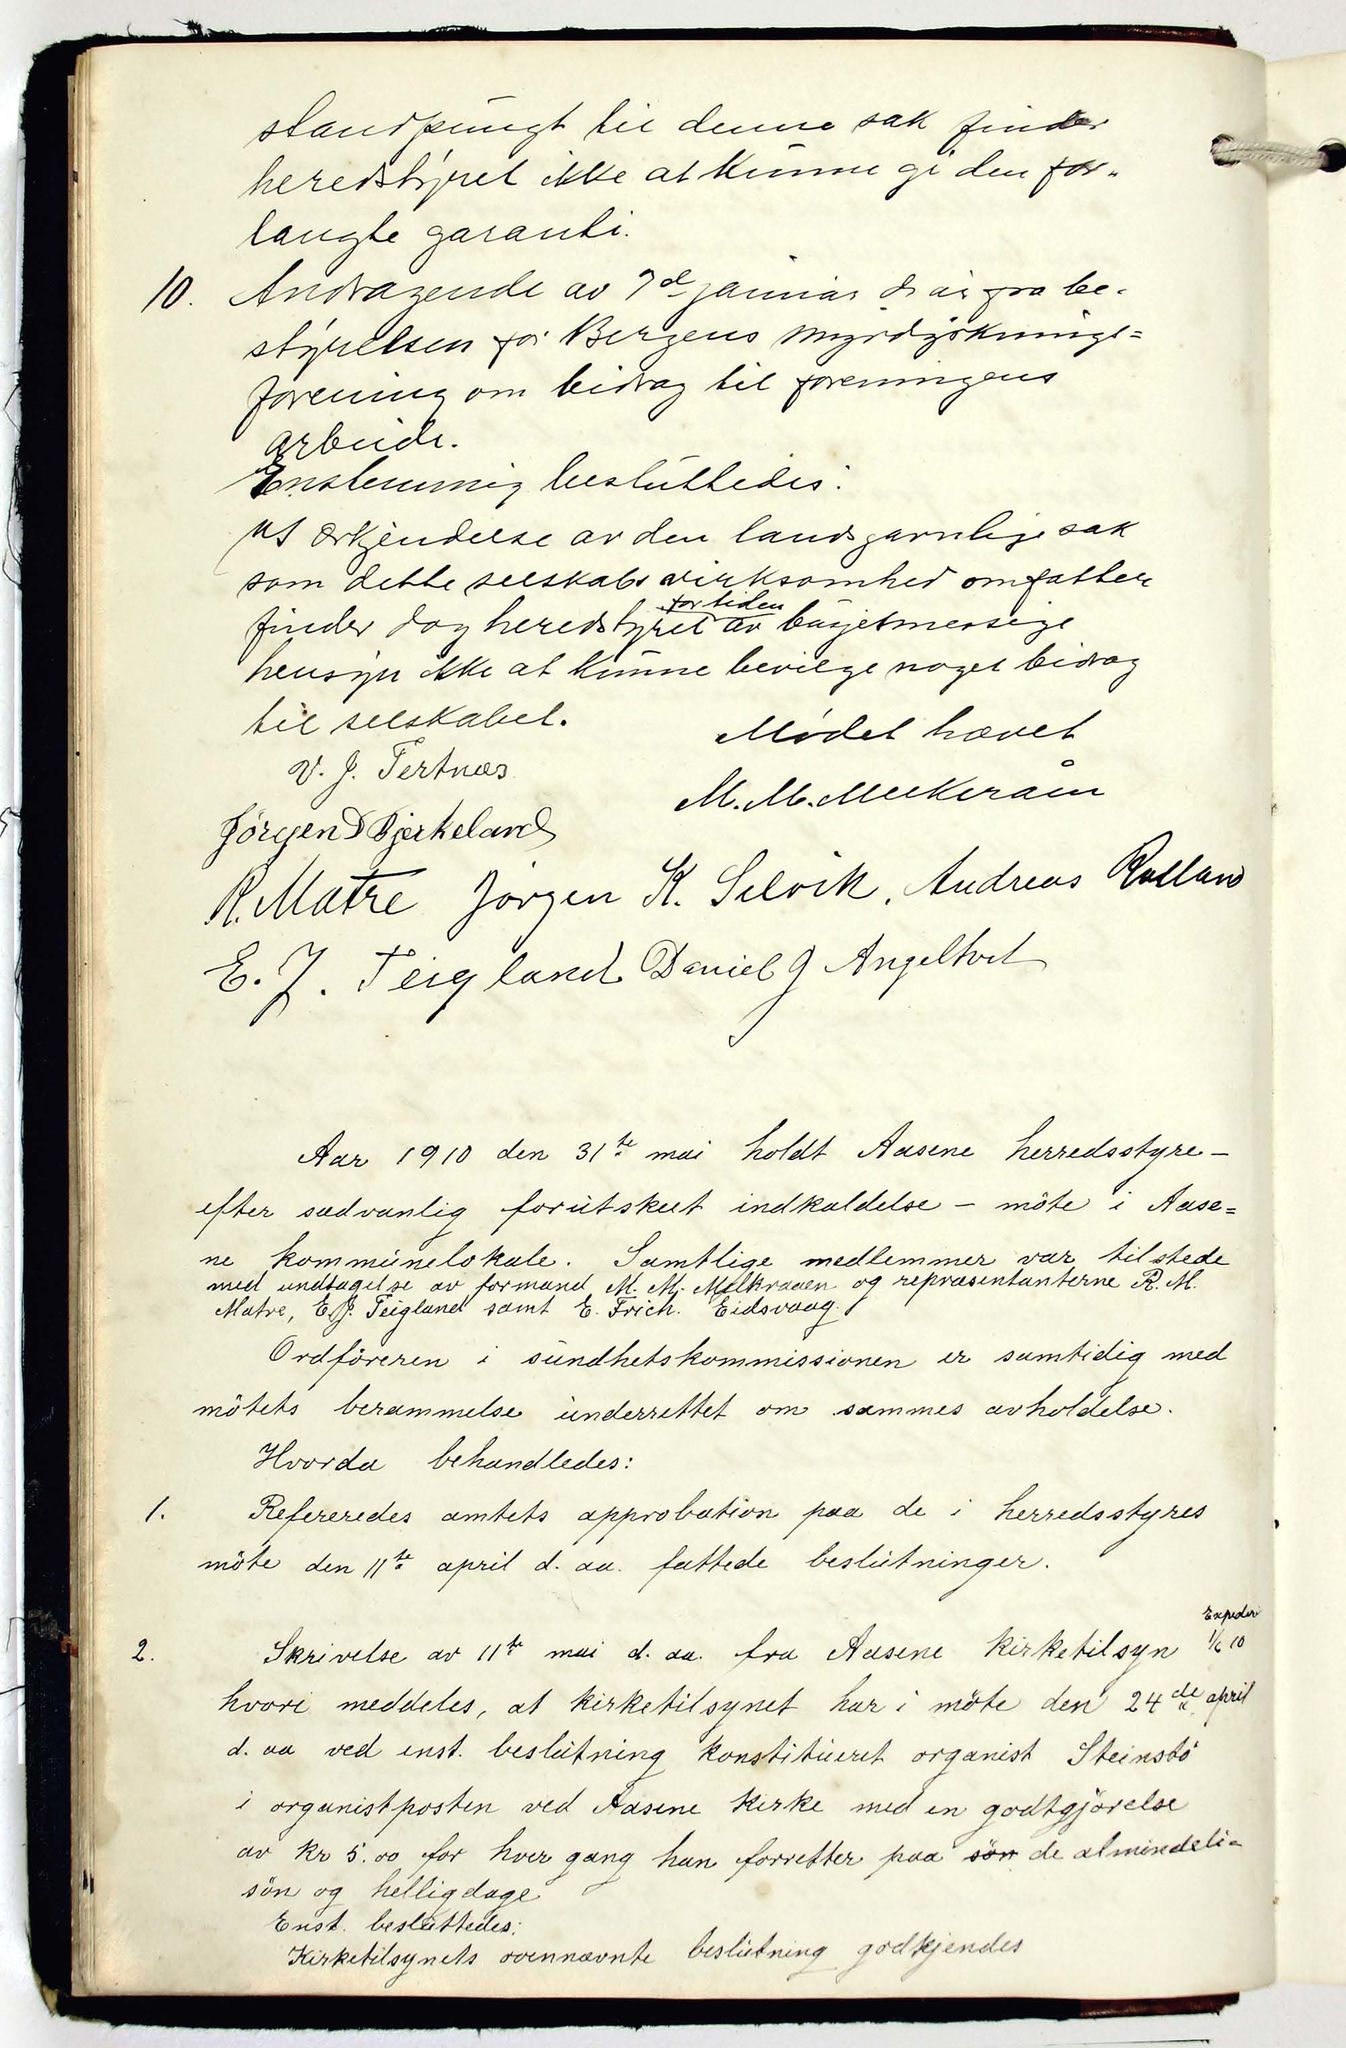 standpungt til denne sak finder
heredstyret ikke at kunne gi den for-
langte garanti.
10. Andragende av 7de januar d år fra be-
styrelsen for Bergens myrdyrknings-
forening om bidrag til foreningens
arbeide.
Enstemmig besluttedes:
Af erkjendelse av den landsgavnlige sak
som dette selskabs virksomhed omfatter
for tiden
finder dog heredstyret av busjetmessige
hensyn ikke at kunne bevilge noget bidrag
til selskabet.
Mödet hævet
V. J. Tertnæs
M. M. Melkeråen
Jörgen D Bjerkeland
R. Matre Jörgen K. Selvik. Andreas Rolland
E. J. Teigland Daniel J Angeltvet
Aar 1910 den 31te mai holdt Aasene herredsstyre -
efter sædvanlig forutskeet indkaldelse - möte i Aase=
ne kommunelokale. Samtlige medlemmer var tilstede
med undtagelse av formand M. M. Melkraaen og repræsentanterne R. M.
Matre, E. J. Teigland samt E. Frich. Eidsvaag.
Ordföreren i sundhetskommissionen er samtidig med
mötets berammelse underrettet om sammes avholdelse.
Hvorda behandledes:
1. Refereredes amtets approbation paa de i herredsstyres
möte den 11te april d. aa. fattede beslutninger.
Expeder
2. Skrivelse av 11te mai d. aa. fra Aasene kirketilsyn 1/6 10
hvori meddeles, at kirketilsynet har i möte den 24de april
d. aa ved enst. beslutning konstitueret organist Steinstö
i organistposten ved Aasene kirke med en godtgjörelse
av kr 5.00 for hver gang han forretter paa sön de almindeli-
sön og helligdage
Enst. besluttedes:
Kirketilsynets ovennævnte beslutning godkjendes